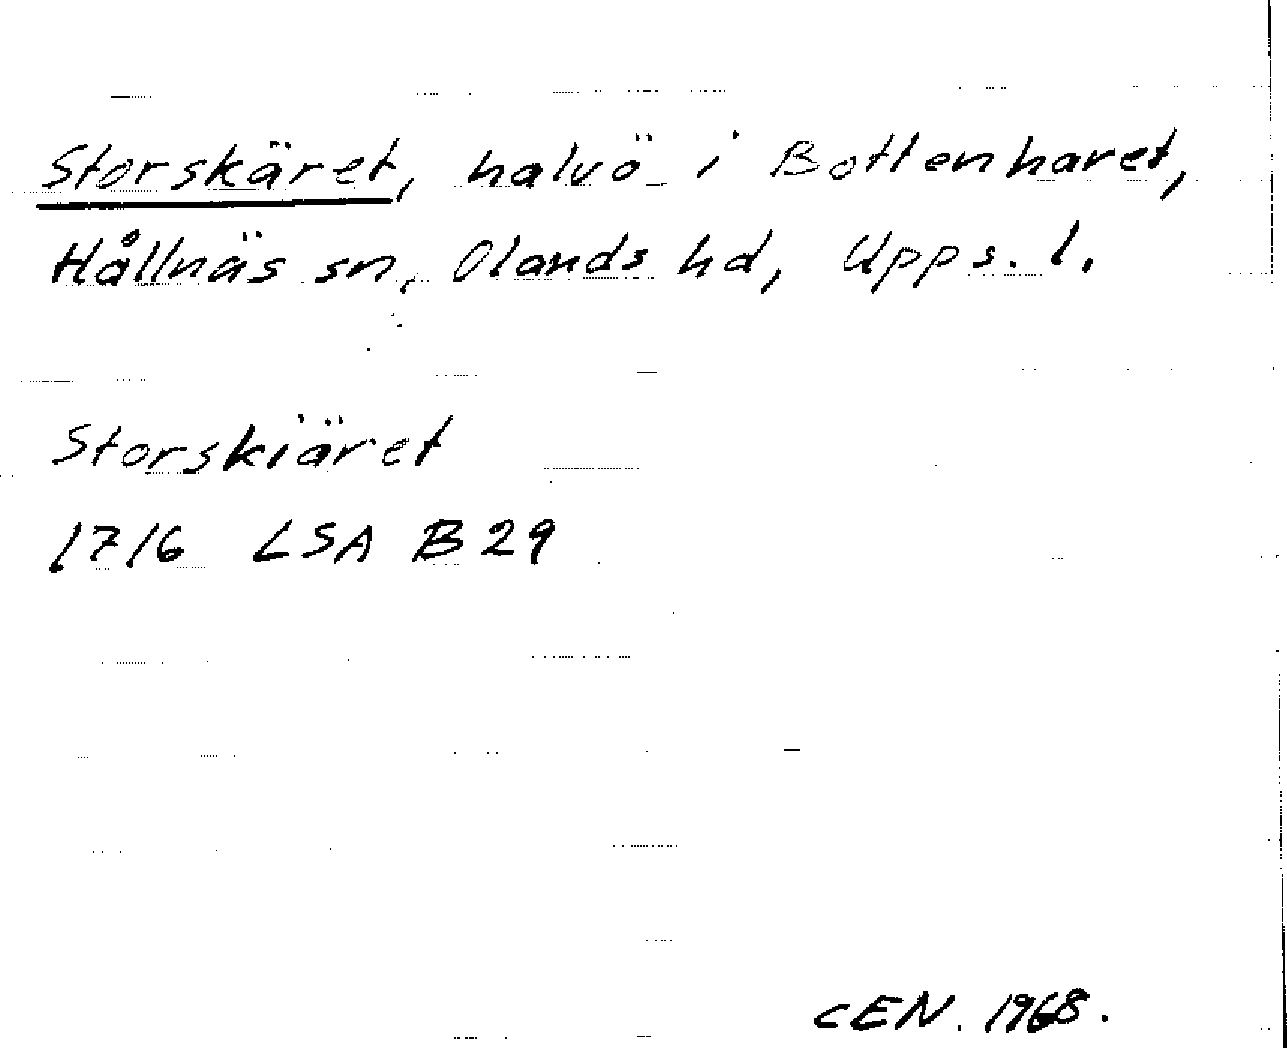 Storskäret, halvö i Bottenhavet,
Hållnäs sn, Olands hd, Upps. l.
Storskiäret
1716 LSA B 29
CEN. 1968.